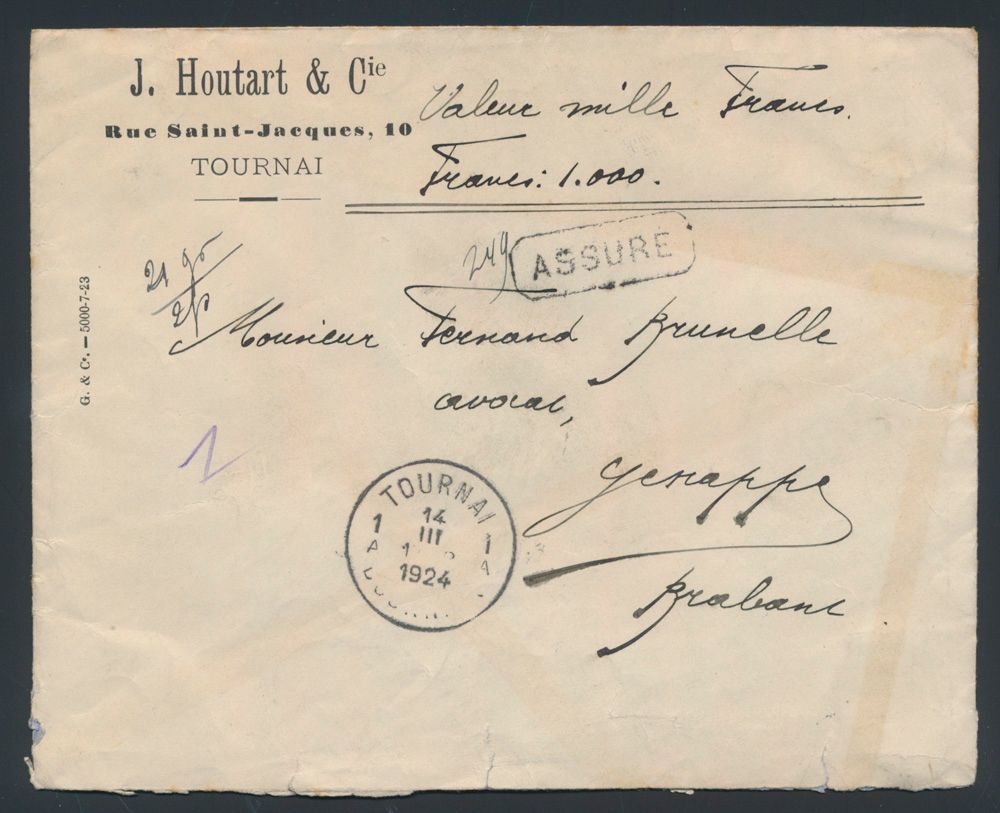 J. Houtart & Cie
Rue Saint-Jacques, 10
TOURNAI
Valeur mille Francs.
Francs: 1.000.
249
ASSURÉ
21 95
G. & Cie. — 5000-7-23
Monsieur Fernand Brunelle
avocat,
Genappe
Brabant
TOURNAI
1 1
14
III
1924
A A